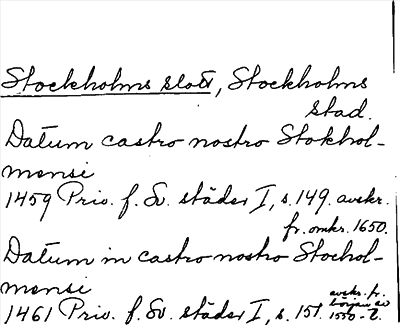 Stockholms slott, Stockholms
stad.
Datum castro nostro Stokhol-
mensi
1459 Priv. f. Sv. städer I, s. 149. avskr.
fr. omkr. 1650.
Datum in castro nostro Stochol-
mensi
1461 Priv. f. Sv. städer I, s. 151. avskr. fr.
början av
1550-t.